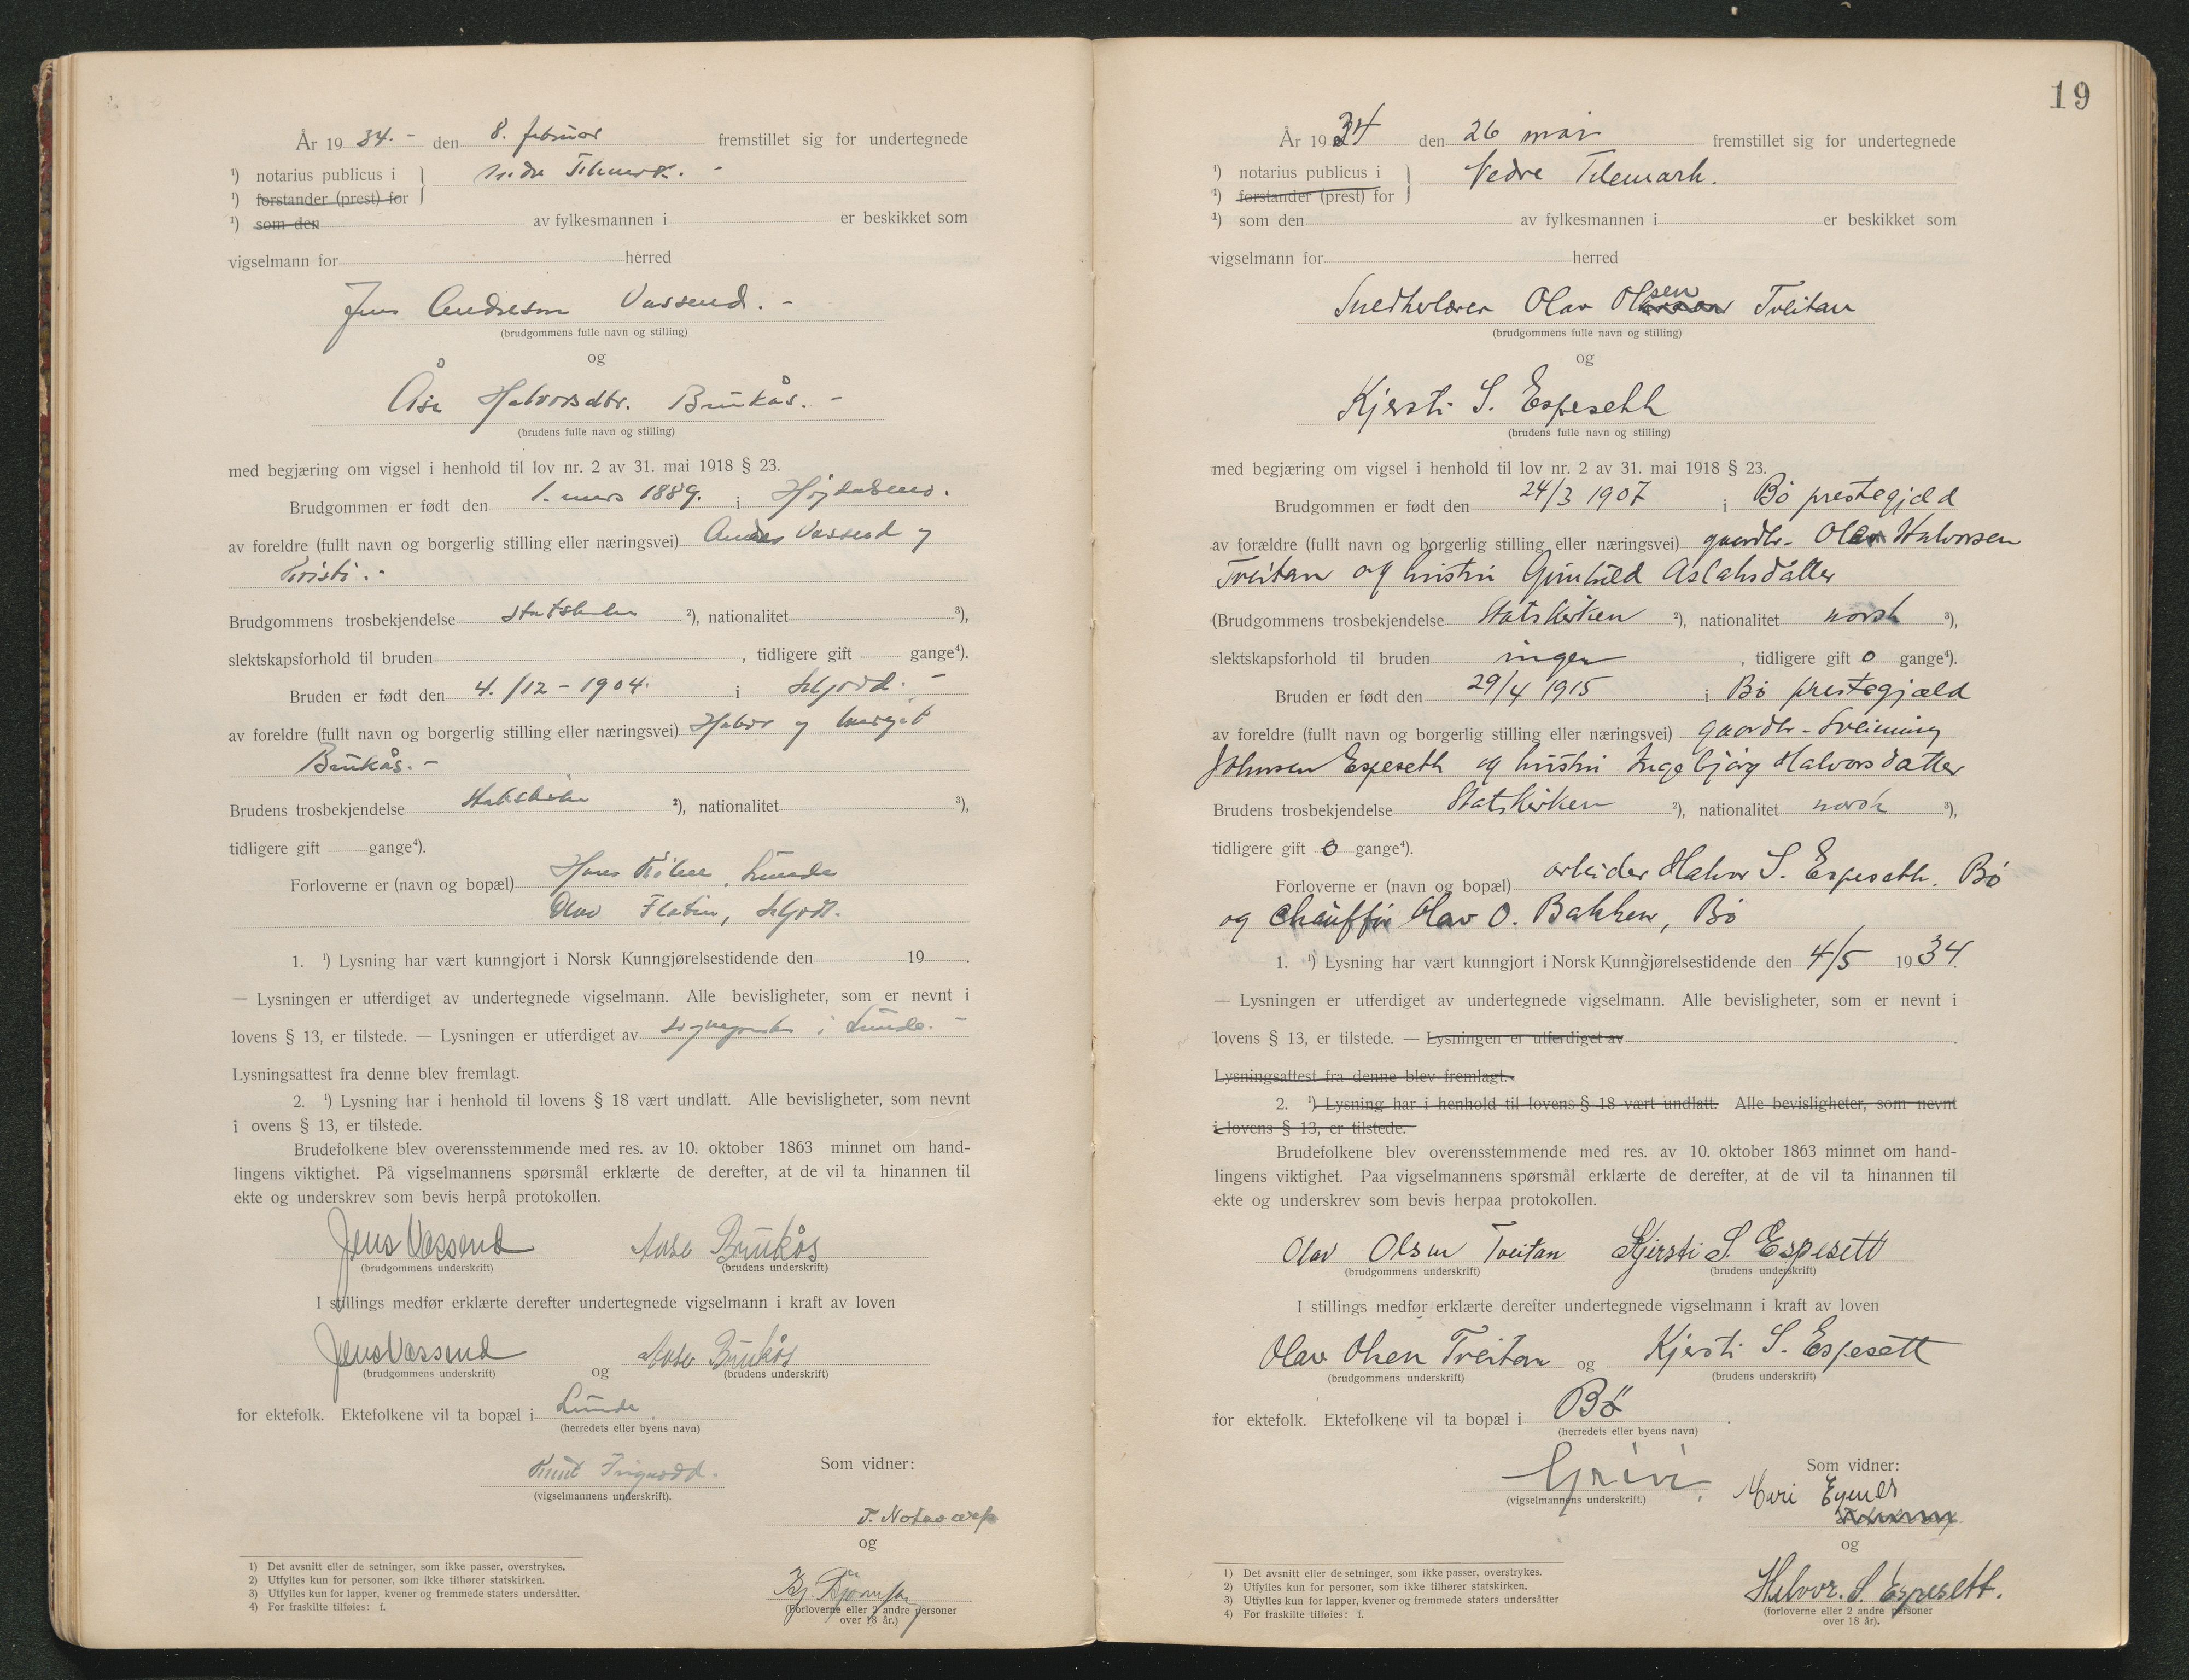 År 19 34. - den 8. februar fremstillet sig for undertegnede
¹) notarius publicus i Nedre Telemark. -
¹) forstander (prest) for
¹) som den av fylkesmannen i er beskikket som
vigselmann for herred
Jens Andresen Vassend. -
(brudgommens fulle navn og stilling)
og
Åse Halvorsdtr. Brukås. -
(brudens fulle navn og stilling)
med begjæring om vigsel i henhold til lov nr. 2 av 31. mai 1918 § 23.
Brudgommen er født den 1. mars 1889. i
av foreldre (fullt navn og borgerlig stilling eller næringsvei) Andres Vassend og
Kristi. -
Brudgommens trosbekjendelse statskirken ²), nationalitet ³),
slektskapsforhold til bruden , tidligere gift gange⁴).
Bruden er født den 4./12 - 1904. i
av foreldre (fullt navn og borgerlig stilling eller næringsvei) Halvor og Margit
Brukås. -
Brudens trosbekjendelse statskirken ²), nationalitet ³),
tidligere gift gange⁴).
Forloverne er (navn og bopæl) Hans Lunde
Olav Flatin,
1. ¹) Lysning har vært kunngjort i Norsk Kunngjørelsestidende den 19 .
— Lysningen er utferdiget av undertegnede vigselmann. Alle bevisligheter, som er nevnt i
lovens § 13, er tilstede. — Lysningen er utferdiget av sogneprest i Lunde. -
Lysningsattest fra denne blev fremlagt.
2. ¹) Lysning har i henhold til lovens § 18 vært undlatt. Alle bevisligheter, som nevnt
i ovens § 13, er tilstede.
Brudefolkene blev overensstemmende med res. av 10. oktober 1863 minnet om hand-
lingens viktighet. På vigselmannens spørsmål erklærte de derefter, at de vil ta hinannen til
ekte og underskrev som bevis herpå protokollen.
Jens Vassend Aase Brukås
(brudgommens underskrift) (brudens underskrift)
I stillings medfør erklærte derefter undertegnede vigselmann i kraft av loven
Jens Vassend og Aase Brukås
(brudgommens underskrift) (brudens underskrift)
for ektefolk. Ektefolkene vil ta bopæl i Lunde.
(herredets eller byens navn)
Knut
(vigselmannens underskrift).
Som vidner:
T. Notevarp
og
Bj. Bjørnson
(Forloverne eller 2 andre personer
over 18 år.)
1) Det avsnitt eller de setninger, som ikke passer, overstrykes.
2) Utfylles kun for personer, som ikke tilhører statskirken.
3) Utfylles kun for lapper, kvener og fremmede staters undersåtter.
4) For fraskilte tilføies: f.
19
År 19 34 den 26 mai fremstillet sig for undertegnede
¹) notarius publicus i Nedre Telemark.
¹) forstander (prest) for
¹) som den av fylkesmannen i er beskikket som
vigselmann for herred
Snedkerlærer Olav Olsen Tveitan
(brudgommens fulle navn og stilling)
og
Kjersti S. Espeseth
(brudens fulle navn og stilling)
med begjæring om vigsel i henhold til lov nr. 2 av 31. mai 1918 § 23.
Brudgommen er født den 24/3 1907 i Bø prestegjeld
av forældre (fullt navn og borgerlig stilling eller næringsvei) gaardbr. Olav Halvorsen
Tveitan og hustru Gunhild Aslaksdatter
(Brudgommens trosbekjendelse Statskirken ²), nationalitet norsk ³),
slektskapsforhold til bruden ingen , tidligere gift 0 gange⁴).
Bruden er født den 29/4 1915 i Bø prestegjæld
av foreldre (fullt navn og borgerlig stilling eller næringsvei) gaardbr. Sveinung
Johnsen Espeseth og hustru Ingebjørg Halvorsdatter
Brudens trosbekjendelse Statskirken ²), nationalitet norsk ³),
tidligere gift 0 gange⁴).
Forloverne er (navn og bopæl) arbeider Halvor S. Espeseth. Bø
og chauffør Olav O. Bakken, Bø
1. ¹) Lysning har vært kunngjort i Norsk Kunngjørelsestidende den 4/5 1934.
— Lysningen er utferdiget av undertegnede vigselmann. Alle bevisligheter, som er nevnt i
lovens § 13, er tilstede. — Lysningen er utferdiget av .
Lysningsattest fra denne blev fremlagt.
2. ¹) Lysning har i henhold til lovens § 18 vært undlatt. Alle bevisligheter, som nevnt
i lovens § 13, er tilstede.
Brudefolkene blev overensstemmende med res. av 10. oktober 1863 minnet om hand-
lingens viktighet. Paa vigselmannens spørsmål erklærte de derefter, at de vil ta hinannen til
ekte og underskrev som bevis herpaa protokollen.
Olav Olsen Tveitan Kjersti S. Espesett
(brudgommens underskrift) (brudens underskrift)
I stillings medfør erklærte derefter undertegnede vigselmann i kraft av loven
Olav Olsen Tveitan og Kjersti S. Espesett
(brudgommens underskrift) (brudens underskrift)
for ektefolk. Ektefolkene vil ta bopæl i Bø .
(herredets eller byens navn)
(vigselmannens underskrift.)
Som vidner:
og
Halvor. S. Espesett.
(forloverne eller 2 andre personer
over 18 år).
1) Det avsnitt eller de setninger, som ikke passer, overstrykes.
2) Utfylles kun for personer, som ikke tilhører statskirken.
3) Utfylles kun for lapper, kvener og fremmede staters undersåtter
4) For fraskilte tilføies: f.